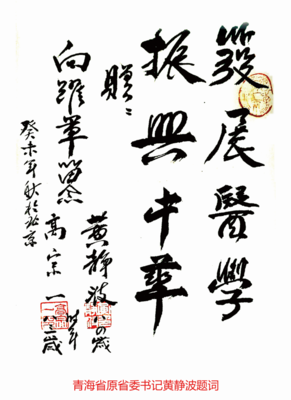 發展醫學
振興中華
贈:
向躍華留念
黃静波 八四歲
高宗一 時年 一百二歲
癸未年秋於北京
青海省原省委书记黄静波题词